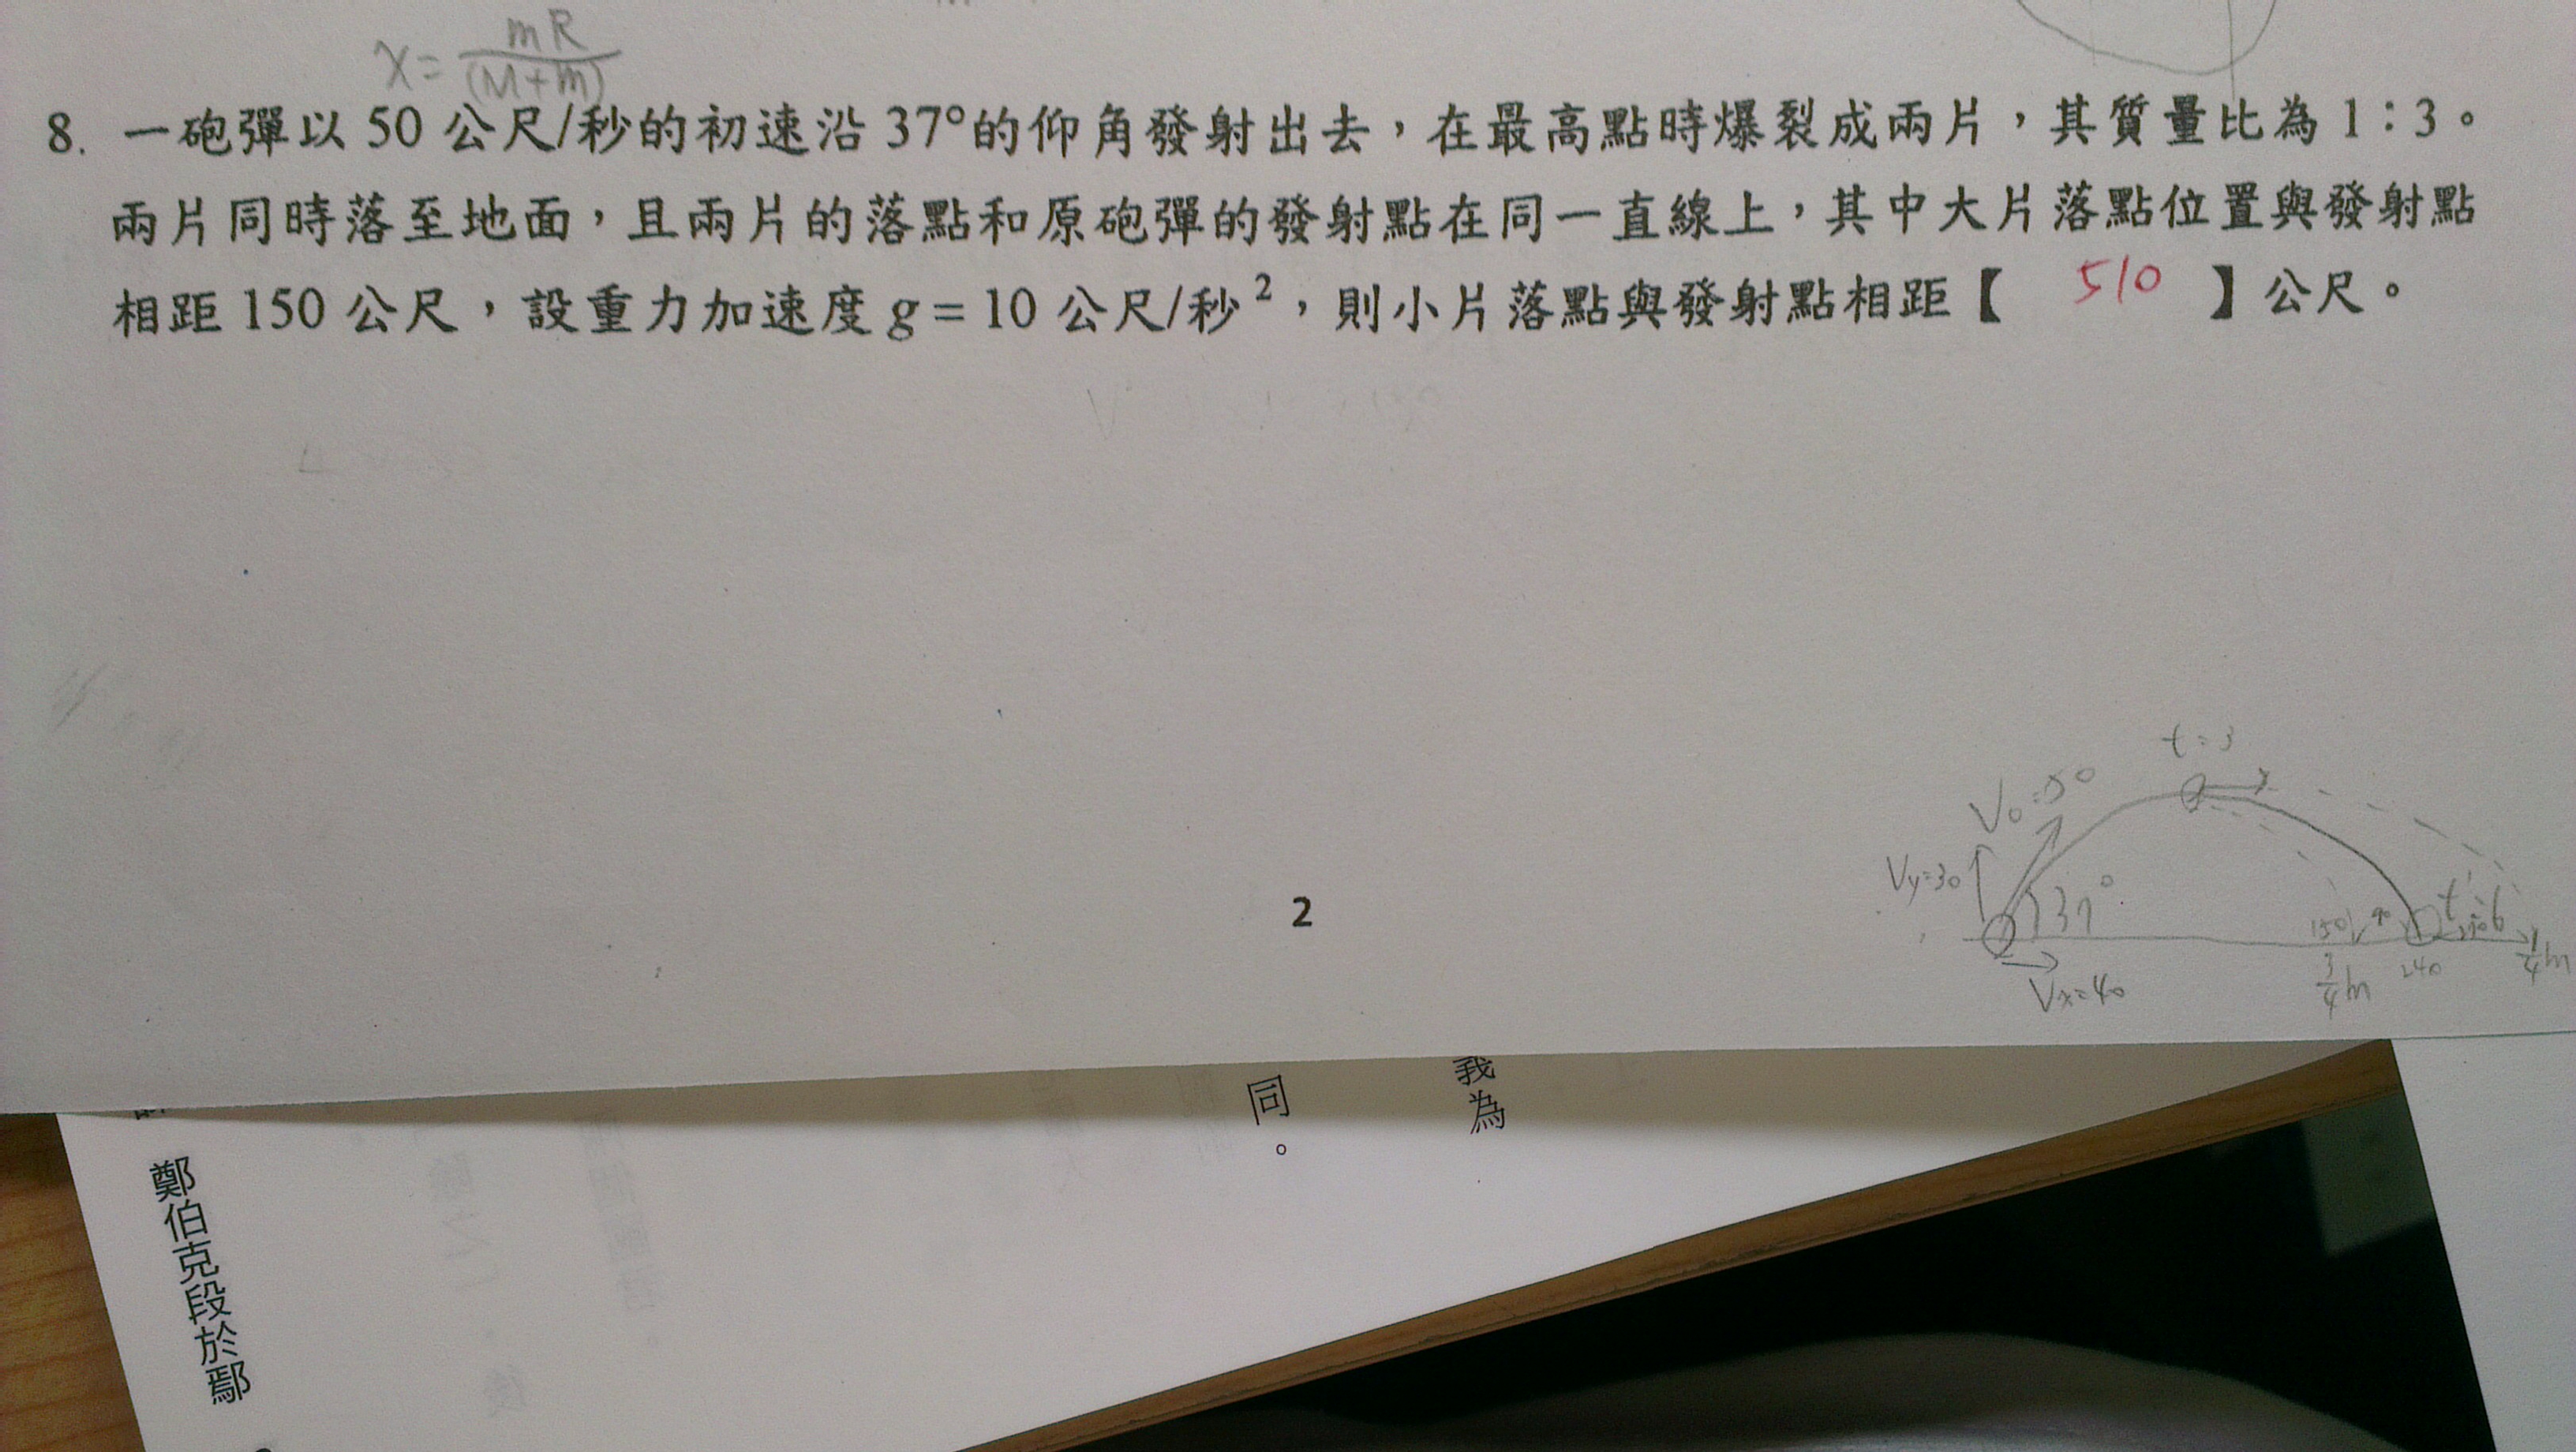 x = mR/(M+m)
8. 一砲彈以 50 公尺/秒的初速沿 37°的仰角發射出去，在最高點時爆裂成兩片，其質量比為 1：3。
兩片同時落至地面，且兩片的落點和原砲彈的發射點在同一直線上，其中大片落點位置與發射點
相距 150 公尺，設重力加速度 g = 10 公尺/秒²，則小片落點與發射點相距【 510 】公尺。
t=3
V₀=50
Vy=30
37°
t=6
150
90
240
Vx=40
3/4 m
1/4 m
2
同。
我為
鄭伯克段於鄢